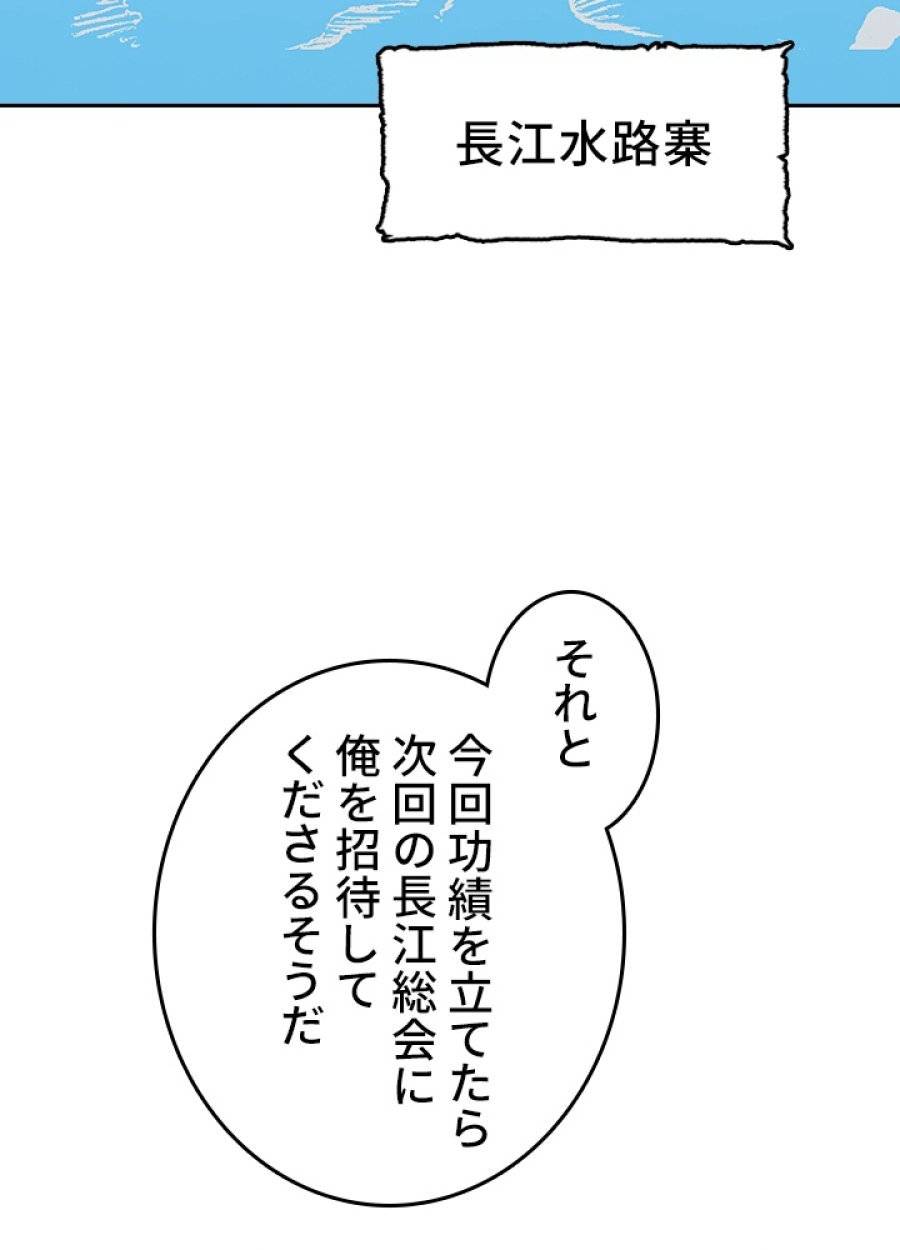 長江水路寨
それと
今回功績を立てたら
次回の長江総会に
俺を招待して
くださるそうだ